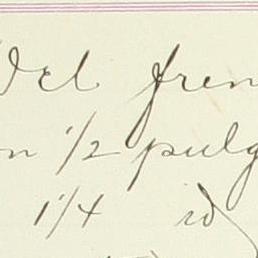 Del fren
on 1/2 pulg
1 1/4 id